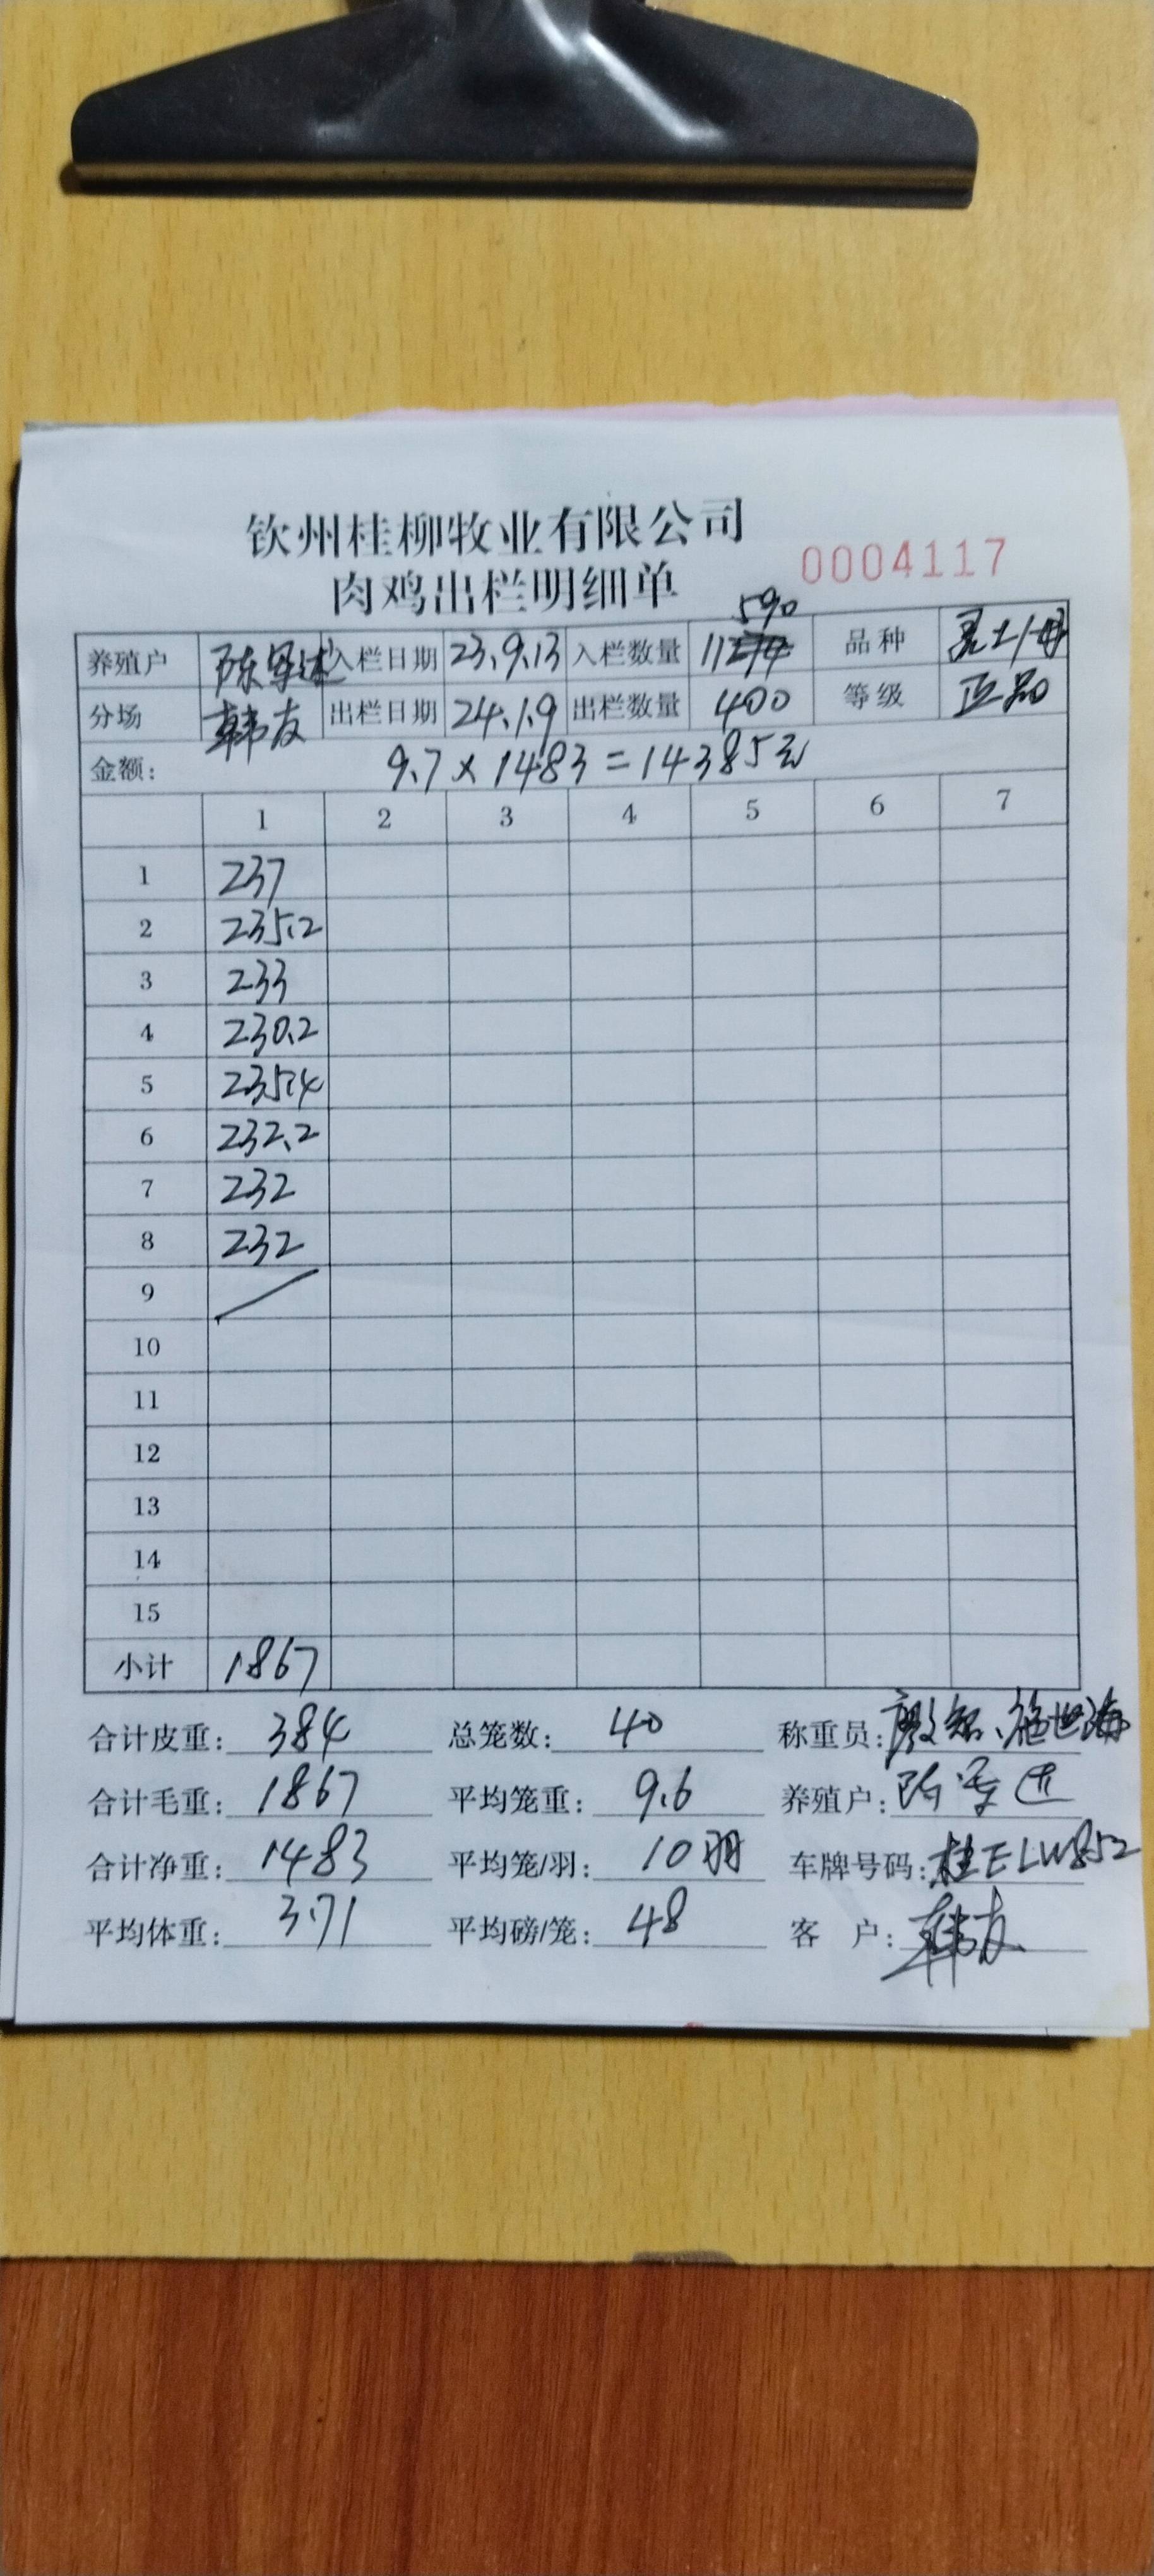 钦州桂柳牧业有限公司
肉鸡出栏明细单 0004117
590
养殖户 陈 入栏日期 23.9.13 入栏数量 11274 品种 灵土1母
分场 韩友 出栏日期 24.1.9 出栏数量 400 等级 正品
金额: 9.7×1483=14385元
1 2 3 4 5 6 7
1 237
2 235.2
3 233
4 230.2
5 235.4
6 232.2
7 232
8 232
9
10
11
12
13
14
15
小计 1867
合计皮重: 384 总笼数: 40 称重员: 施世海
合计毛重: 1867 平均笼重: 9.6 养殖户: 陈
合计净重: 1483 平均笼/羽: 10羽 车牌号码: 桂ELW852
平均体重: 3.71 平均磅/笼: 48 客 户: 韩友